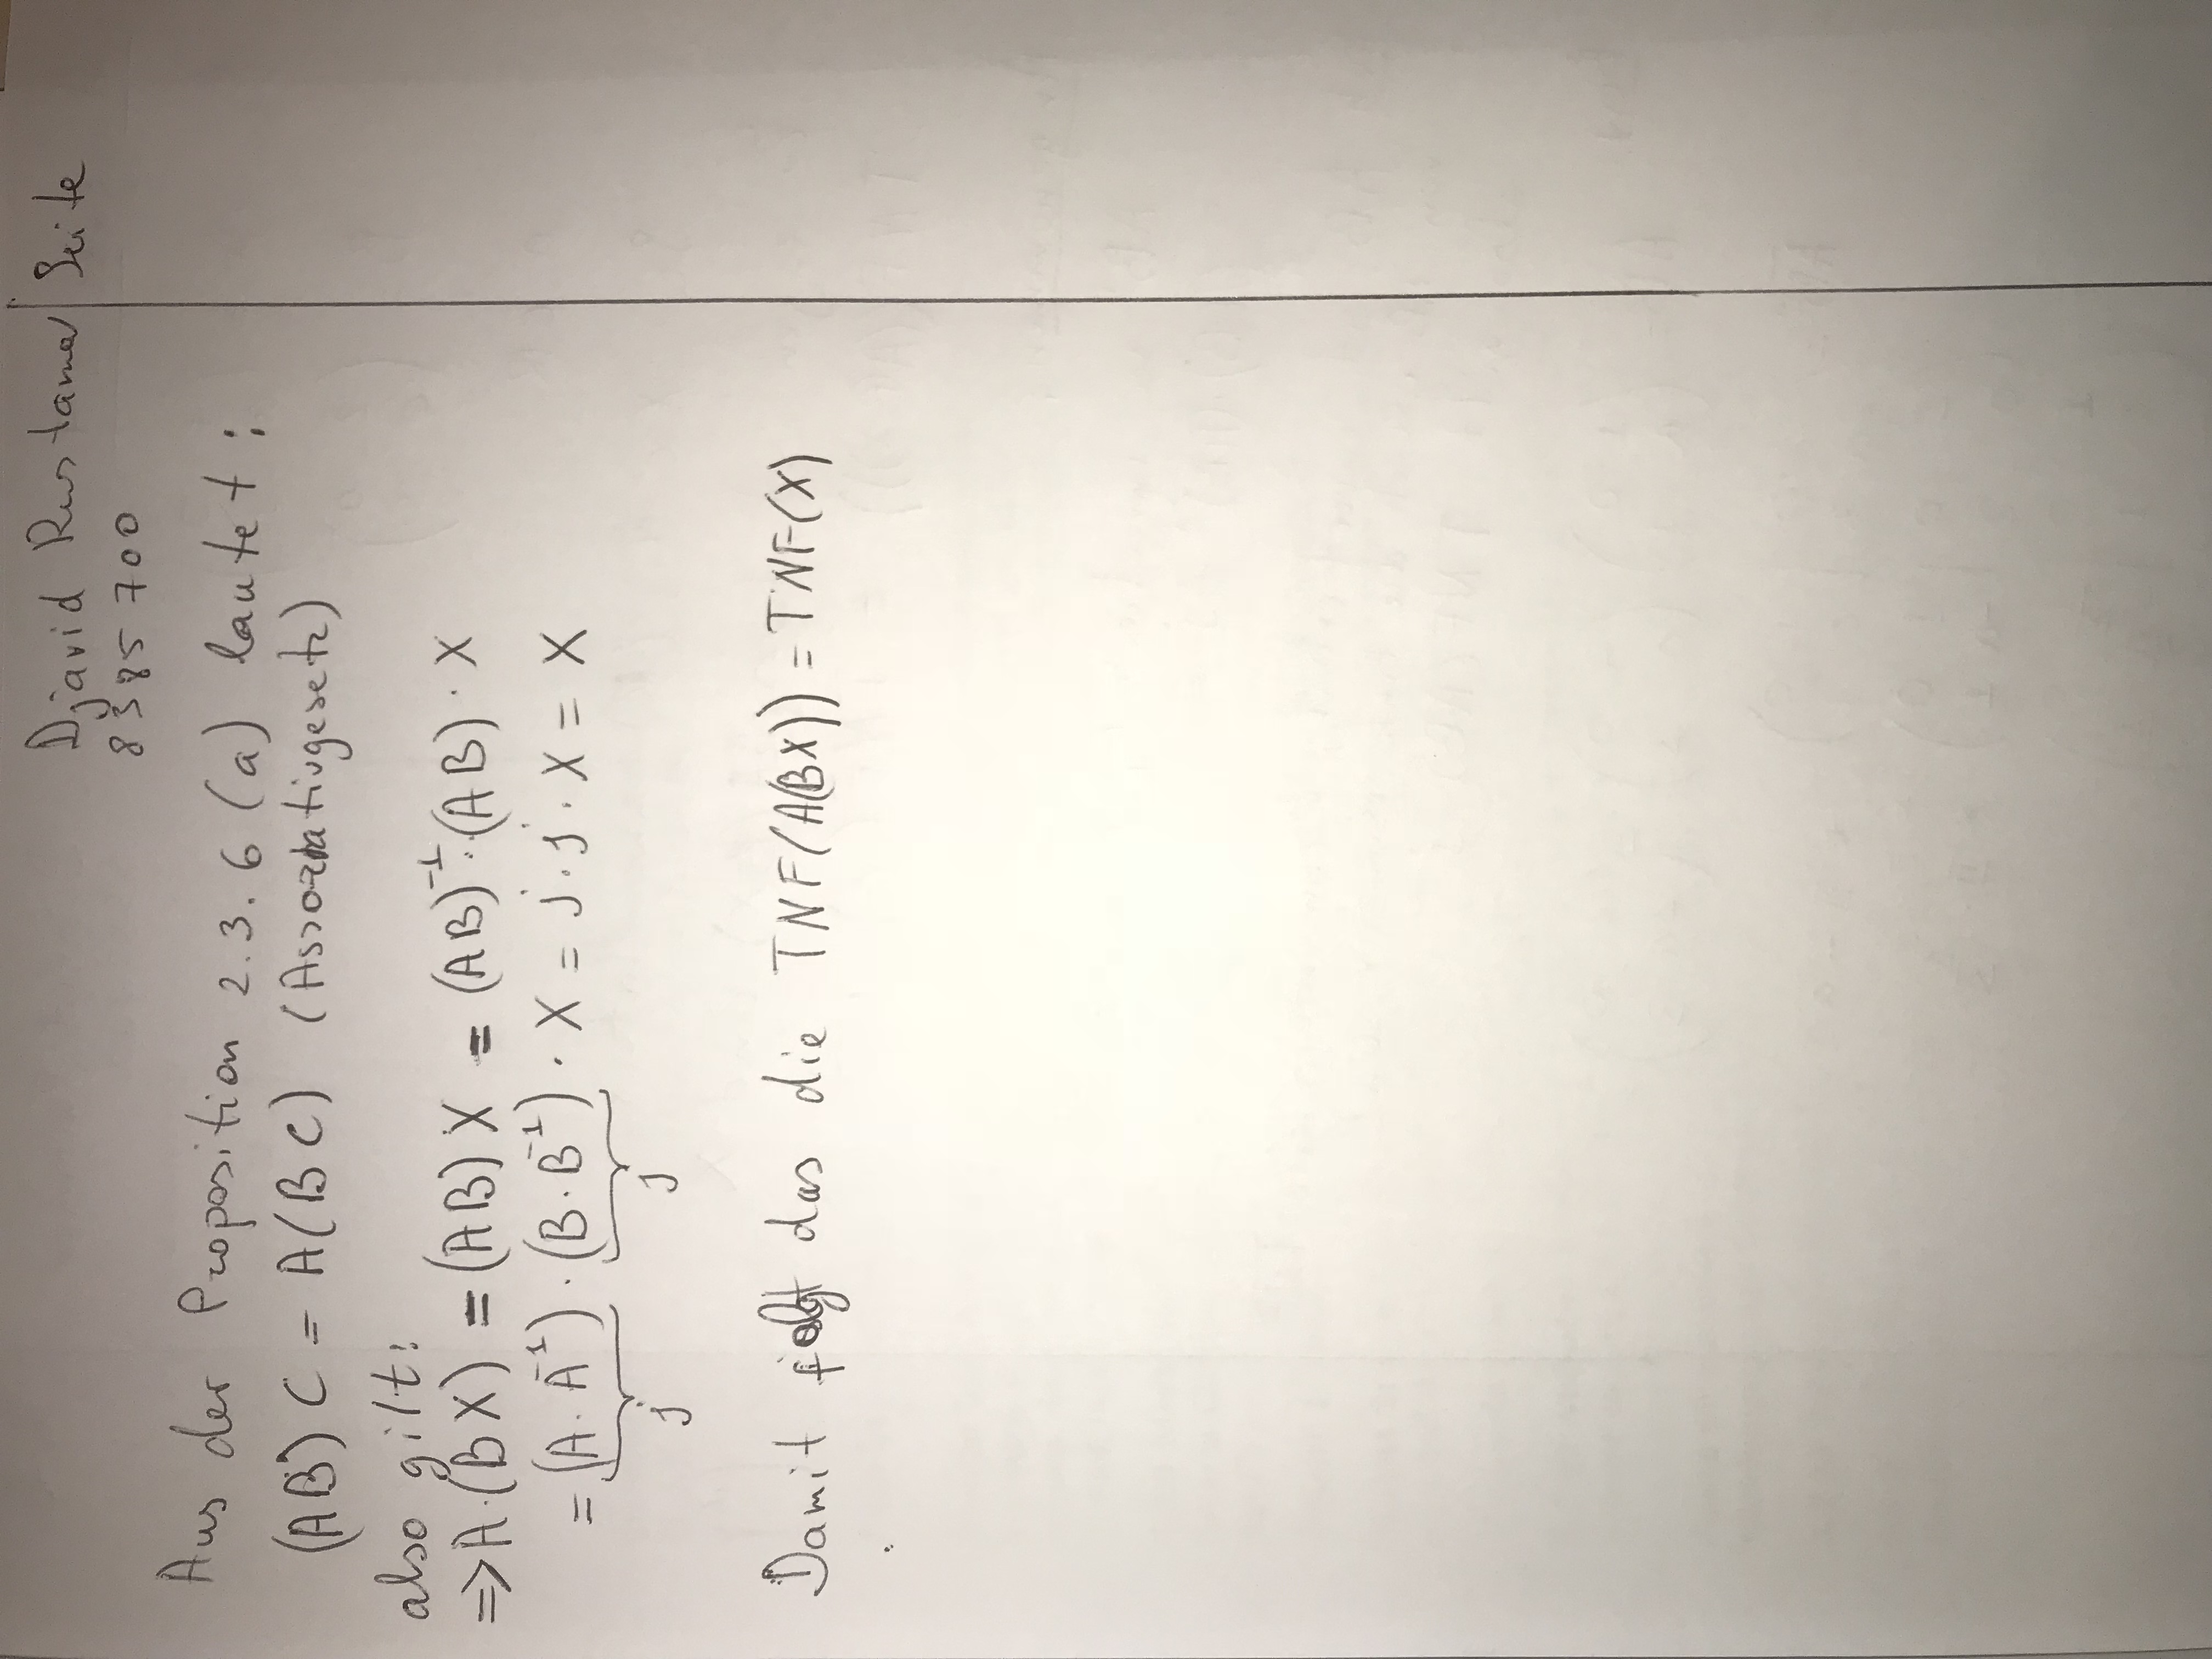 Djavid Rustamov Seite
8385700
Aus der Proposition 2.3.6 (a) lautet:
(AB) C = A(BC) (Assoziativgesetz)
also gilt:
=> A·(BX) = (AB) X = (AB)⁻¹·(AB) · X
= (A·A⁻¹) · (B·B⁻¹) · X = j·j·X = X
j j
Damit folgt das die TNF(A(BX)) = TNF(X)